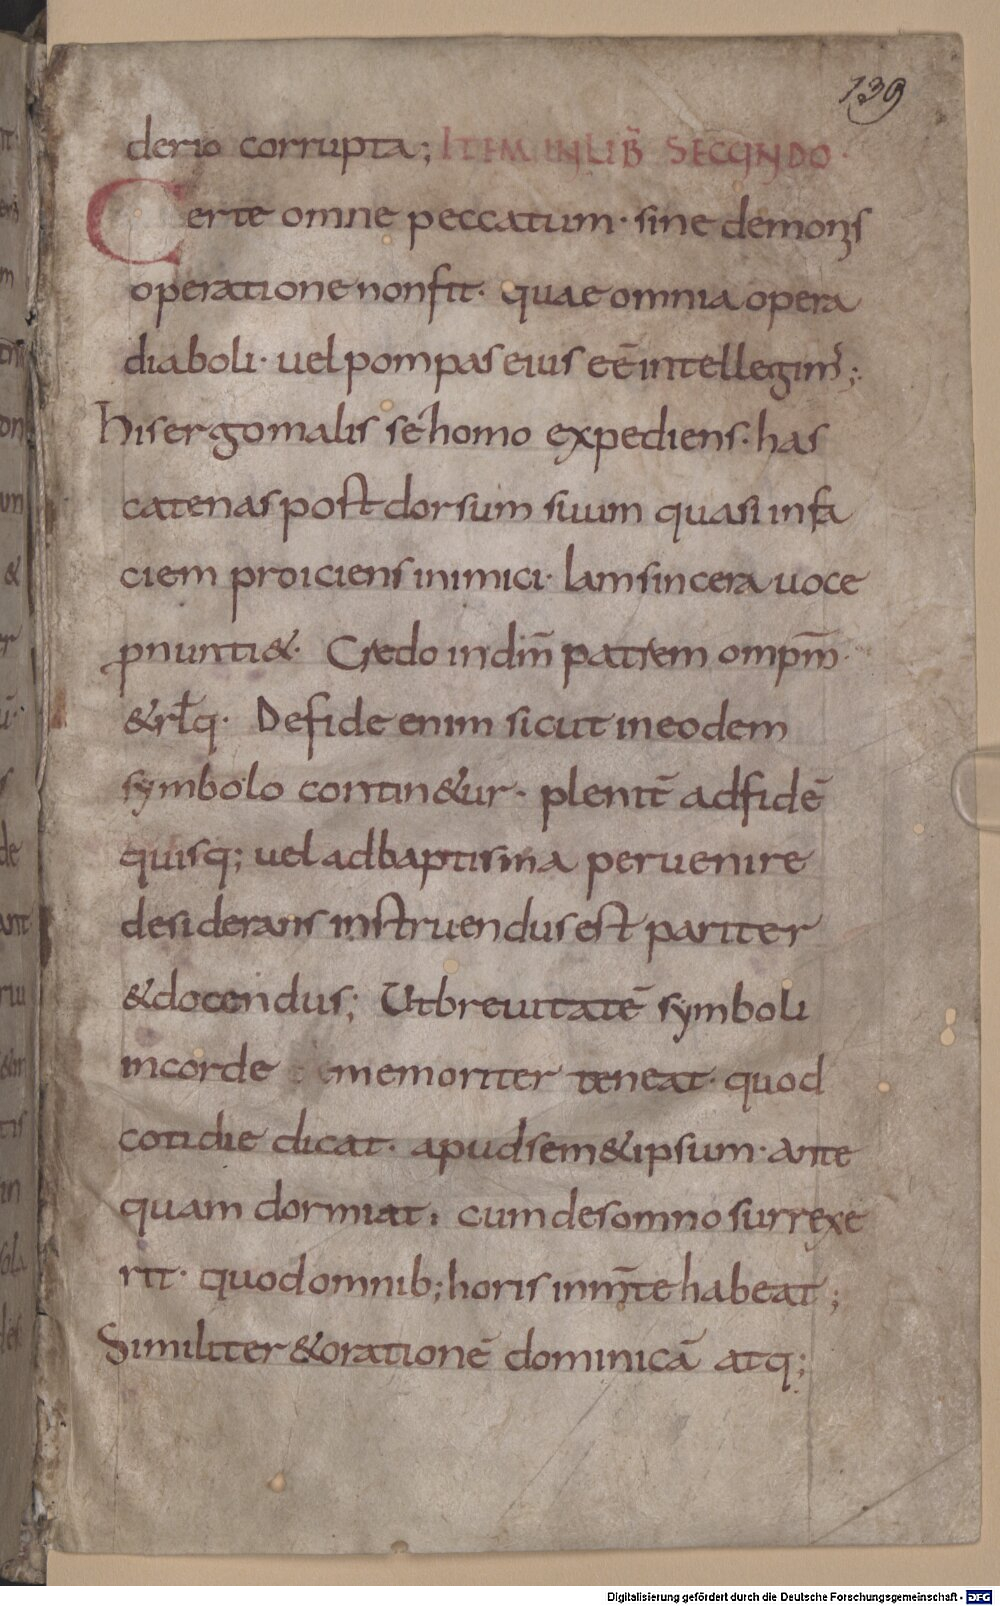 139
derio corrupta; ITEM IN LIB̄ SECUNDO·
Certe omne peccatum· sine demonis
operatione non fit· quae omnia opera
diaboli· uel pompas eius eē intellegim̄;
his ergo malis se homo expediens· has
catenas post dorsum suum quasi in fa
ciem proiciens inimici· Iam sincera uoce
ꝓnunti&· Credo in dm̄ patrem ompm̄·
&rƚq· De fide enim sicut in eodem
symbolo contin&ur· pleniť ad fidē
quisq; uel ad baptisma peruenire
desiderans instruendus est pariter
& docendus; Ut breuitatē symboli
in corde memoriter teneat· quod
cotidie dicat· apud sem&ipsum· ante
quam dormiat· cum de somno surrexe
rit· quod omnib; horis in mṫe habeat;
Similiter & orationē dominicā atq;
Digitalisierung gefördert durch die Deutsche Forschungsgemeinschaft - DFG